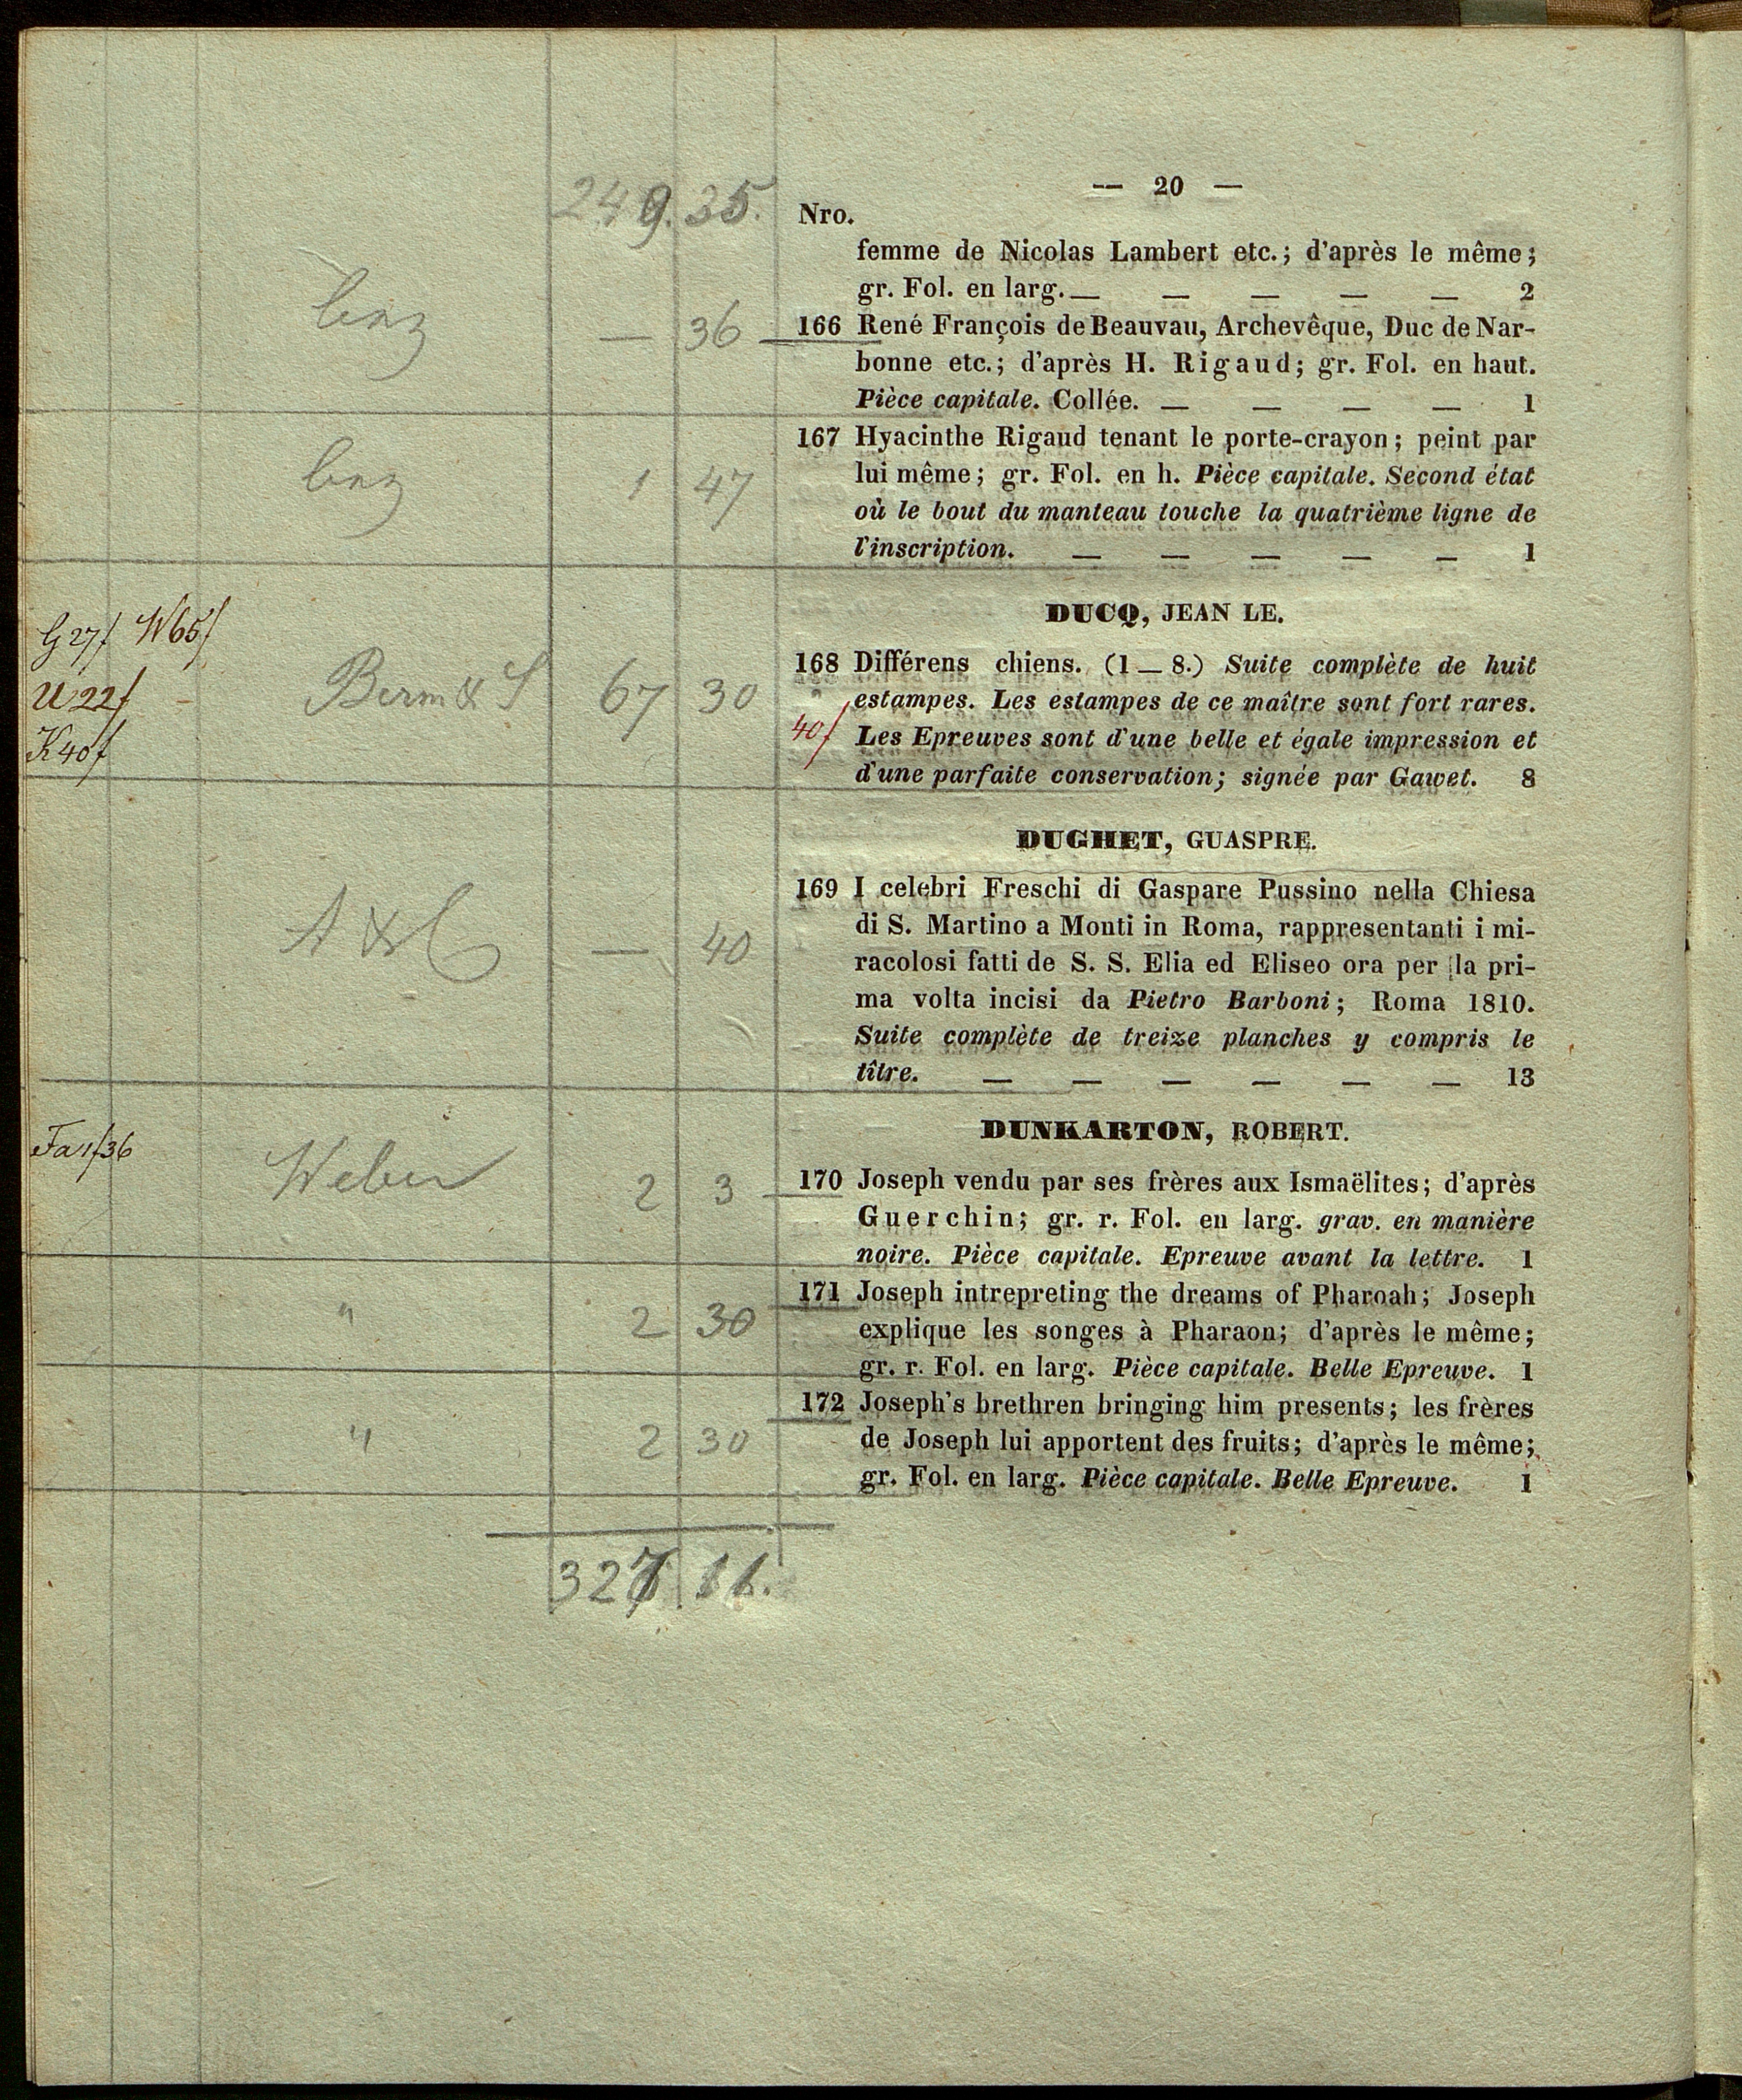 — 20 —
249. 35.
Nro.
femme de Nicolas Lambert etc.; d'après le même;
gr. Fol. en larg. — — — — — 2
— 36
166 René François de Beauvau, Archevêque, Duc de Nar-
bonne etc.; d'après H. Rigaud; gr. Fol. en haut.
Pièce capitale. Collée. — — — — 1
1 47
167 Hyacinthe Rigaud tenant le porte-crayon; peint par
lui même; gr. Fol. en h. Pièce capitale. Second état
où le bout du manteau touche la quatrième ligne de
l'inscription. — — — — — 1
DUCQ, JEAN LE.
G 27f W 65f
U 22f -
K 40f
67 30
168 Différens chiens. (1—8.) Suite complète de huit
estampes. Les estampes de ce maître sont fort rares.
40f
Les Epreuves sont d'une belle et égale impression et
d'une parfaite conservation; signée par Gawet. 8
DUGHET, GUASPRE.
A & C — 40
169 I celebri Freschi di Gaspare Pussino nella Chiesa
di S. Martino a Monti in Roma, rappresentanti i mi-
racolosi fatti de S. S. Elia ed Eliseo ora per la pri-
ma volta incisi da Pietro Barboni; Roma 1810.
Suite complète de treize planches y compris le
tître. — — — — — — 13
DUNKARTON, ROBERT.
Fa 1f36
Weber 2 3
170 Joseph vendu par ses frères aux Ismaëlites; d'après
Guerchin; gr. r. Fol. en larg. grav. en manière
noire. Pièce capitale. Epreuve avant la lettre. 1
" 2 30
171 Joseph intrepreting the dreams of Pharoah; Joseph
explique les songes à Pharaon; d'après le même;
gr. r. Fol. en larg. Pièce capitale. Belle Epreuve. 1
" 2 30
172 Joseph's brethren bringing him presents; les frères
de Joseph lui apportent des fruits; d'après le même;
gr. Fol. en larg. Pièce capitale. Belle Epreuve. 1
327 11.